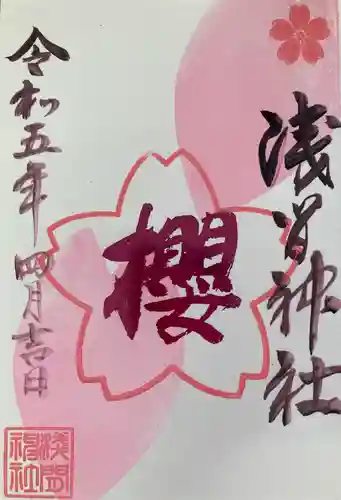 浅間神社
櫻
令和五年四月吉日
浅間
神社